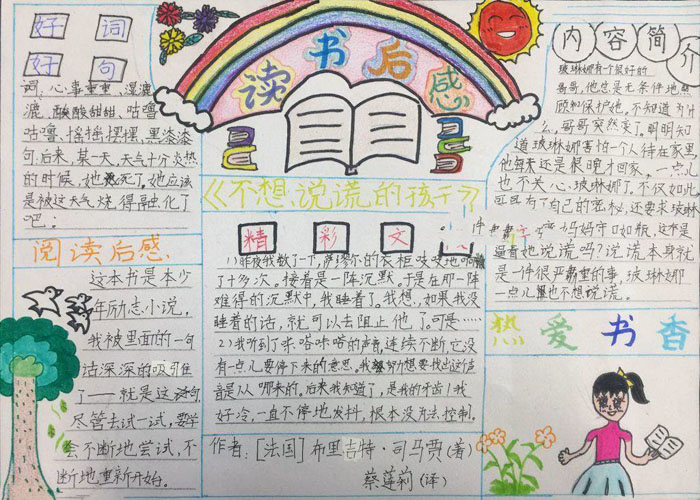 读书后感
好词
好句
词、心事重重、湿漉
漉、酸酸甜甜、咕噜
咕噜、摇摇摆摆、黑漆漆
句、后来,某一天,天气十分炎热
的时候,她死了。她应该
是被这天气烧得融化了
吧!
阅读后感
这本书是本少
年励志小说,
我被里面的一句
话深深的吸引住
了——就是这句,
尽管去试一试,要学
会不断地尝试,不
断地重新开始。
《不想说谎的孩子》
精彩文
1)昨夜我数了一下,萨缪尔的衣柜吱吱地响
了十多次。接着是一阵沉默。于是在那一阵
难得的沉默中,我睡着了。我想,如果我没
睡着的话,就可以去阻止他了。可是……
2)我听到了咔嗒咔嗒的声音,连续不断它没
有一点儿要停下来的意思。我努所想要找出这个声
音是从哪来的。后来我知道了,是我的牙齿!我
好冷,一直不停地发抖,根本没方法控制。
作者:[法国]布里吉特·司马贾(著)
蔡莲莉(译)
内容简介
玻琳娜有个很好的
哥哥,他总是无条件地照
顾和保护她。不知道为什
么,哥哥突然变了。明明知
道玻琳娜害怕一个人待在家里
他每天还是很晚才回家。一点儿
也不关心玻琳娜了。不仅如此
可且有了自己的秘密,还要求玻琳
妈妈守口如瓶,这不是
逼着她说谎吗?说谎本身就
是一件很严重的事,玻琳娜
一点儿也不想说谎。
热爱书香